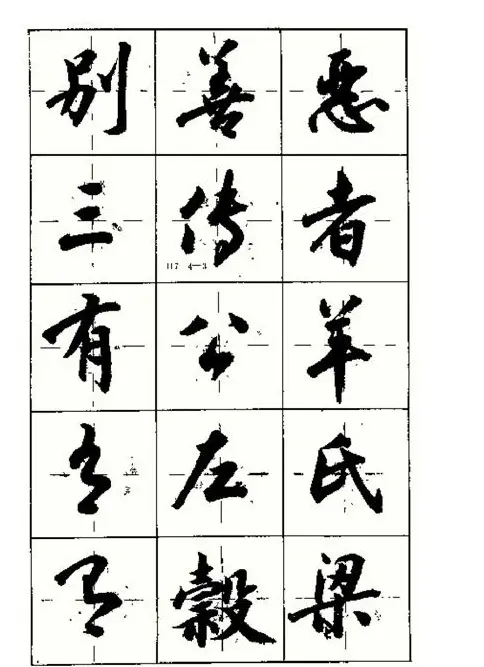 别善恶
三传者
117 4—3
有公羊
有左氏
有穀梁